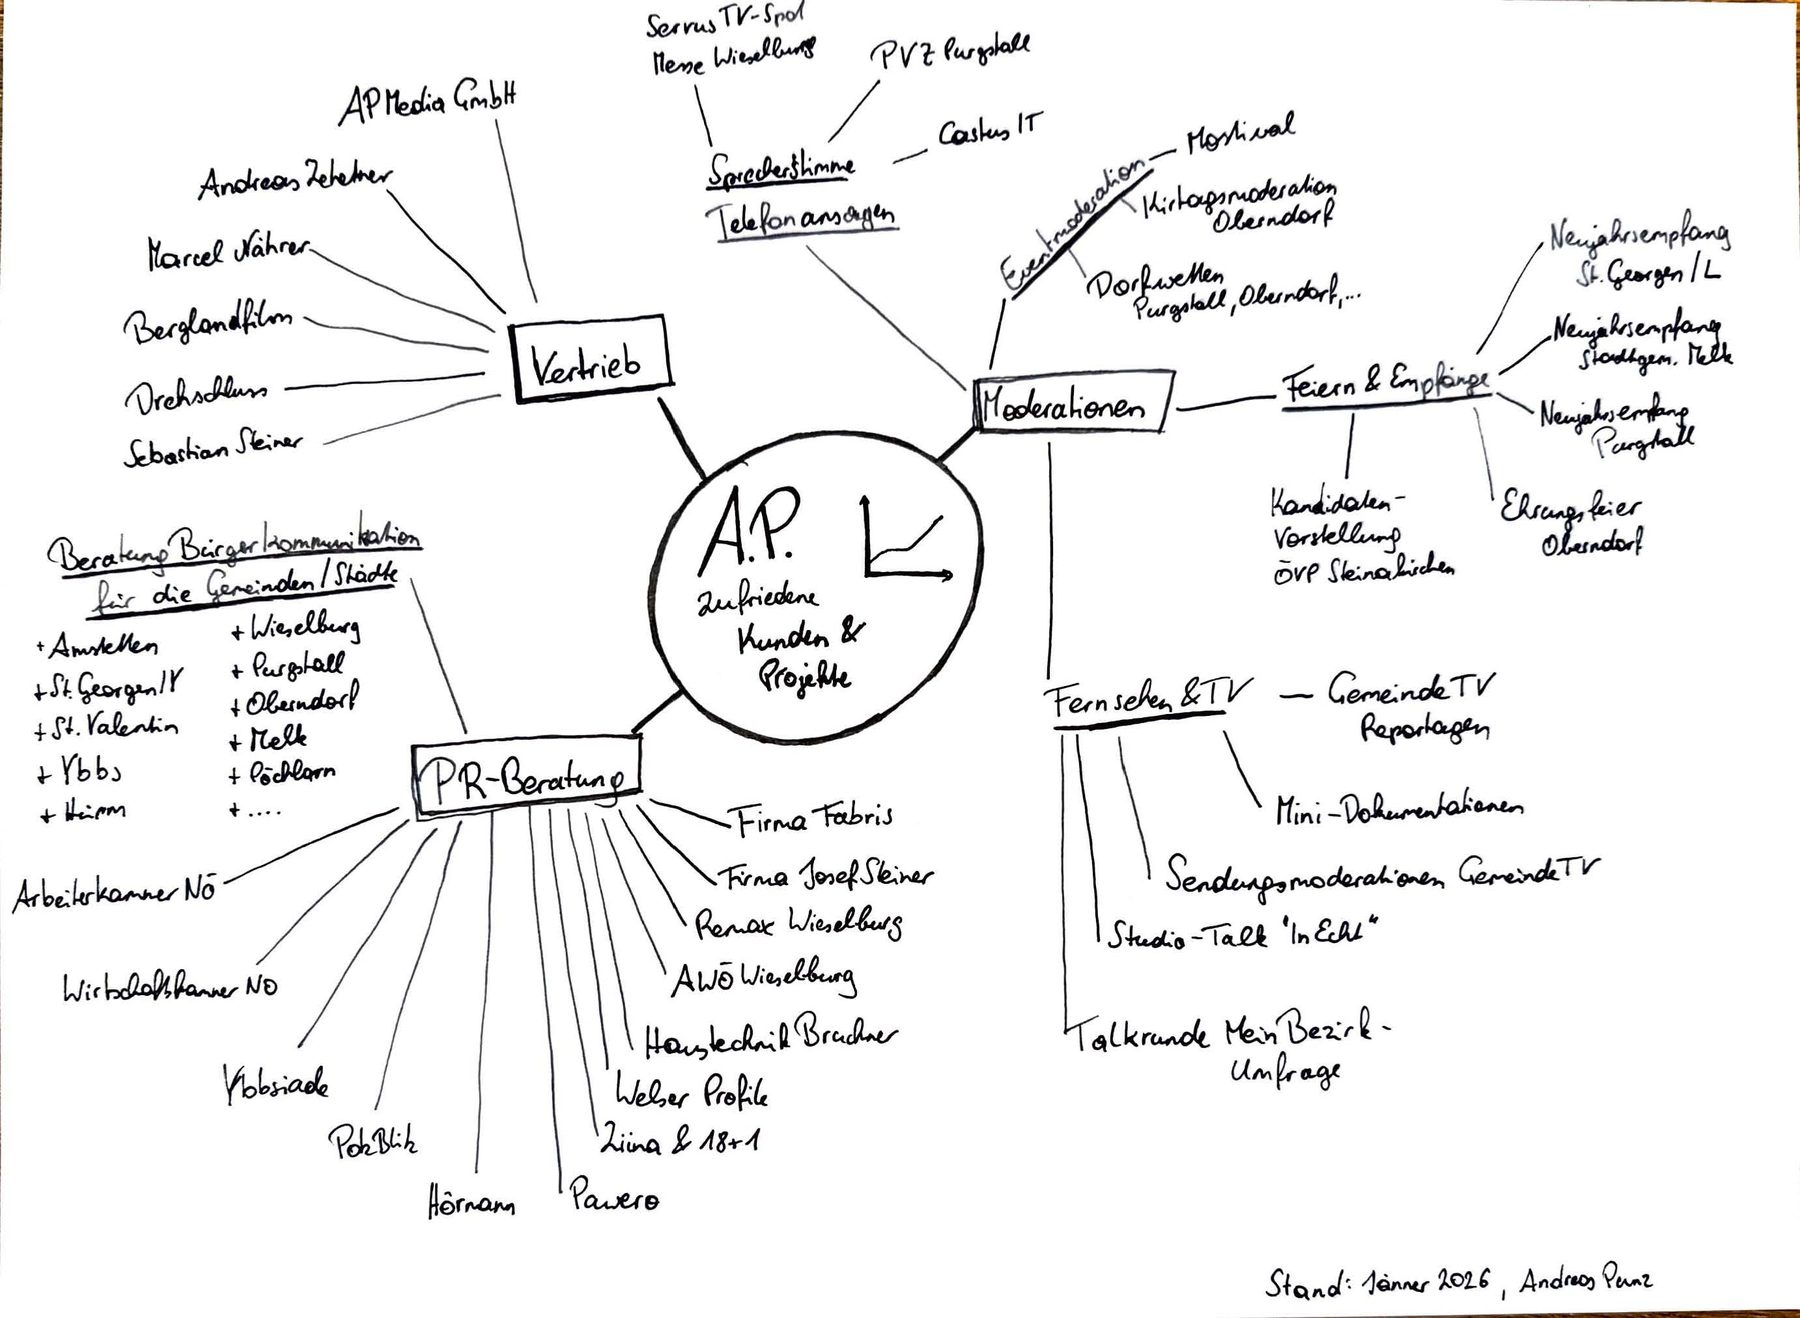 Servus TV-Spot
Messe Wieselburg
PVZ Purgstall
Castus IT
Sprecherstimme
Telefonansagen
AP Media GmbH
Andreas Zehetner
Marcel Nährer
Berglandfilm
Drehschluss
Sebastian Steiner
Vertrieb
Eventmoderation
Mostival
Kirtagsmoderation
Oberndorf
Dorfwetten
Purgstall, Oberndorf,...
Moderationen
Feiern & Empfänge
Neujahrsempfang
St. Georgen/L
Neujahrsempfang
Stadtgem. Melk
Neujahrsemfang
Purgstall
Ehrungsfeier
Oberndorf
Kandidaten-
vorstellung
ÖVP Steinakirchen
A.P.
zufriedene
Kunden &
Projekte
Beratung Bürgerkommunikation
für die Gemeinden/Städte
+ Amstetten
+ St. Georgen/Y
+ St. Valentin
+ Ybbs
+ Hürm
+ Wieselburg
+ Purgstall
+ Oberndorf
+ Melk
+ Pöchlarn
+ ....
PR-Beratung
Arbeiterkammer NÖ
Wirtschaftskammer NÖ
Ybbsiade
PotzBlitz
Hörmann
Pawero
Ziina & 18+1
Welser Profile
Haustechnik Bruckner
AWÖ Wieselburg
Remax Wieselburg
Firma Josef Steiner
Firma Fabris
Fernsehen & TV
GemeindeTV
Reportagen
Mini-Dokumentationen
Sendungsmoderationen GemeindeTV
Studio-Talk "In Echt"
Talkrunde Mein Bezirk-
Umfrage
Stand: Jänner 2026, Andreas Punz